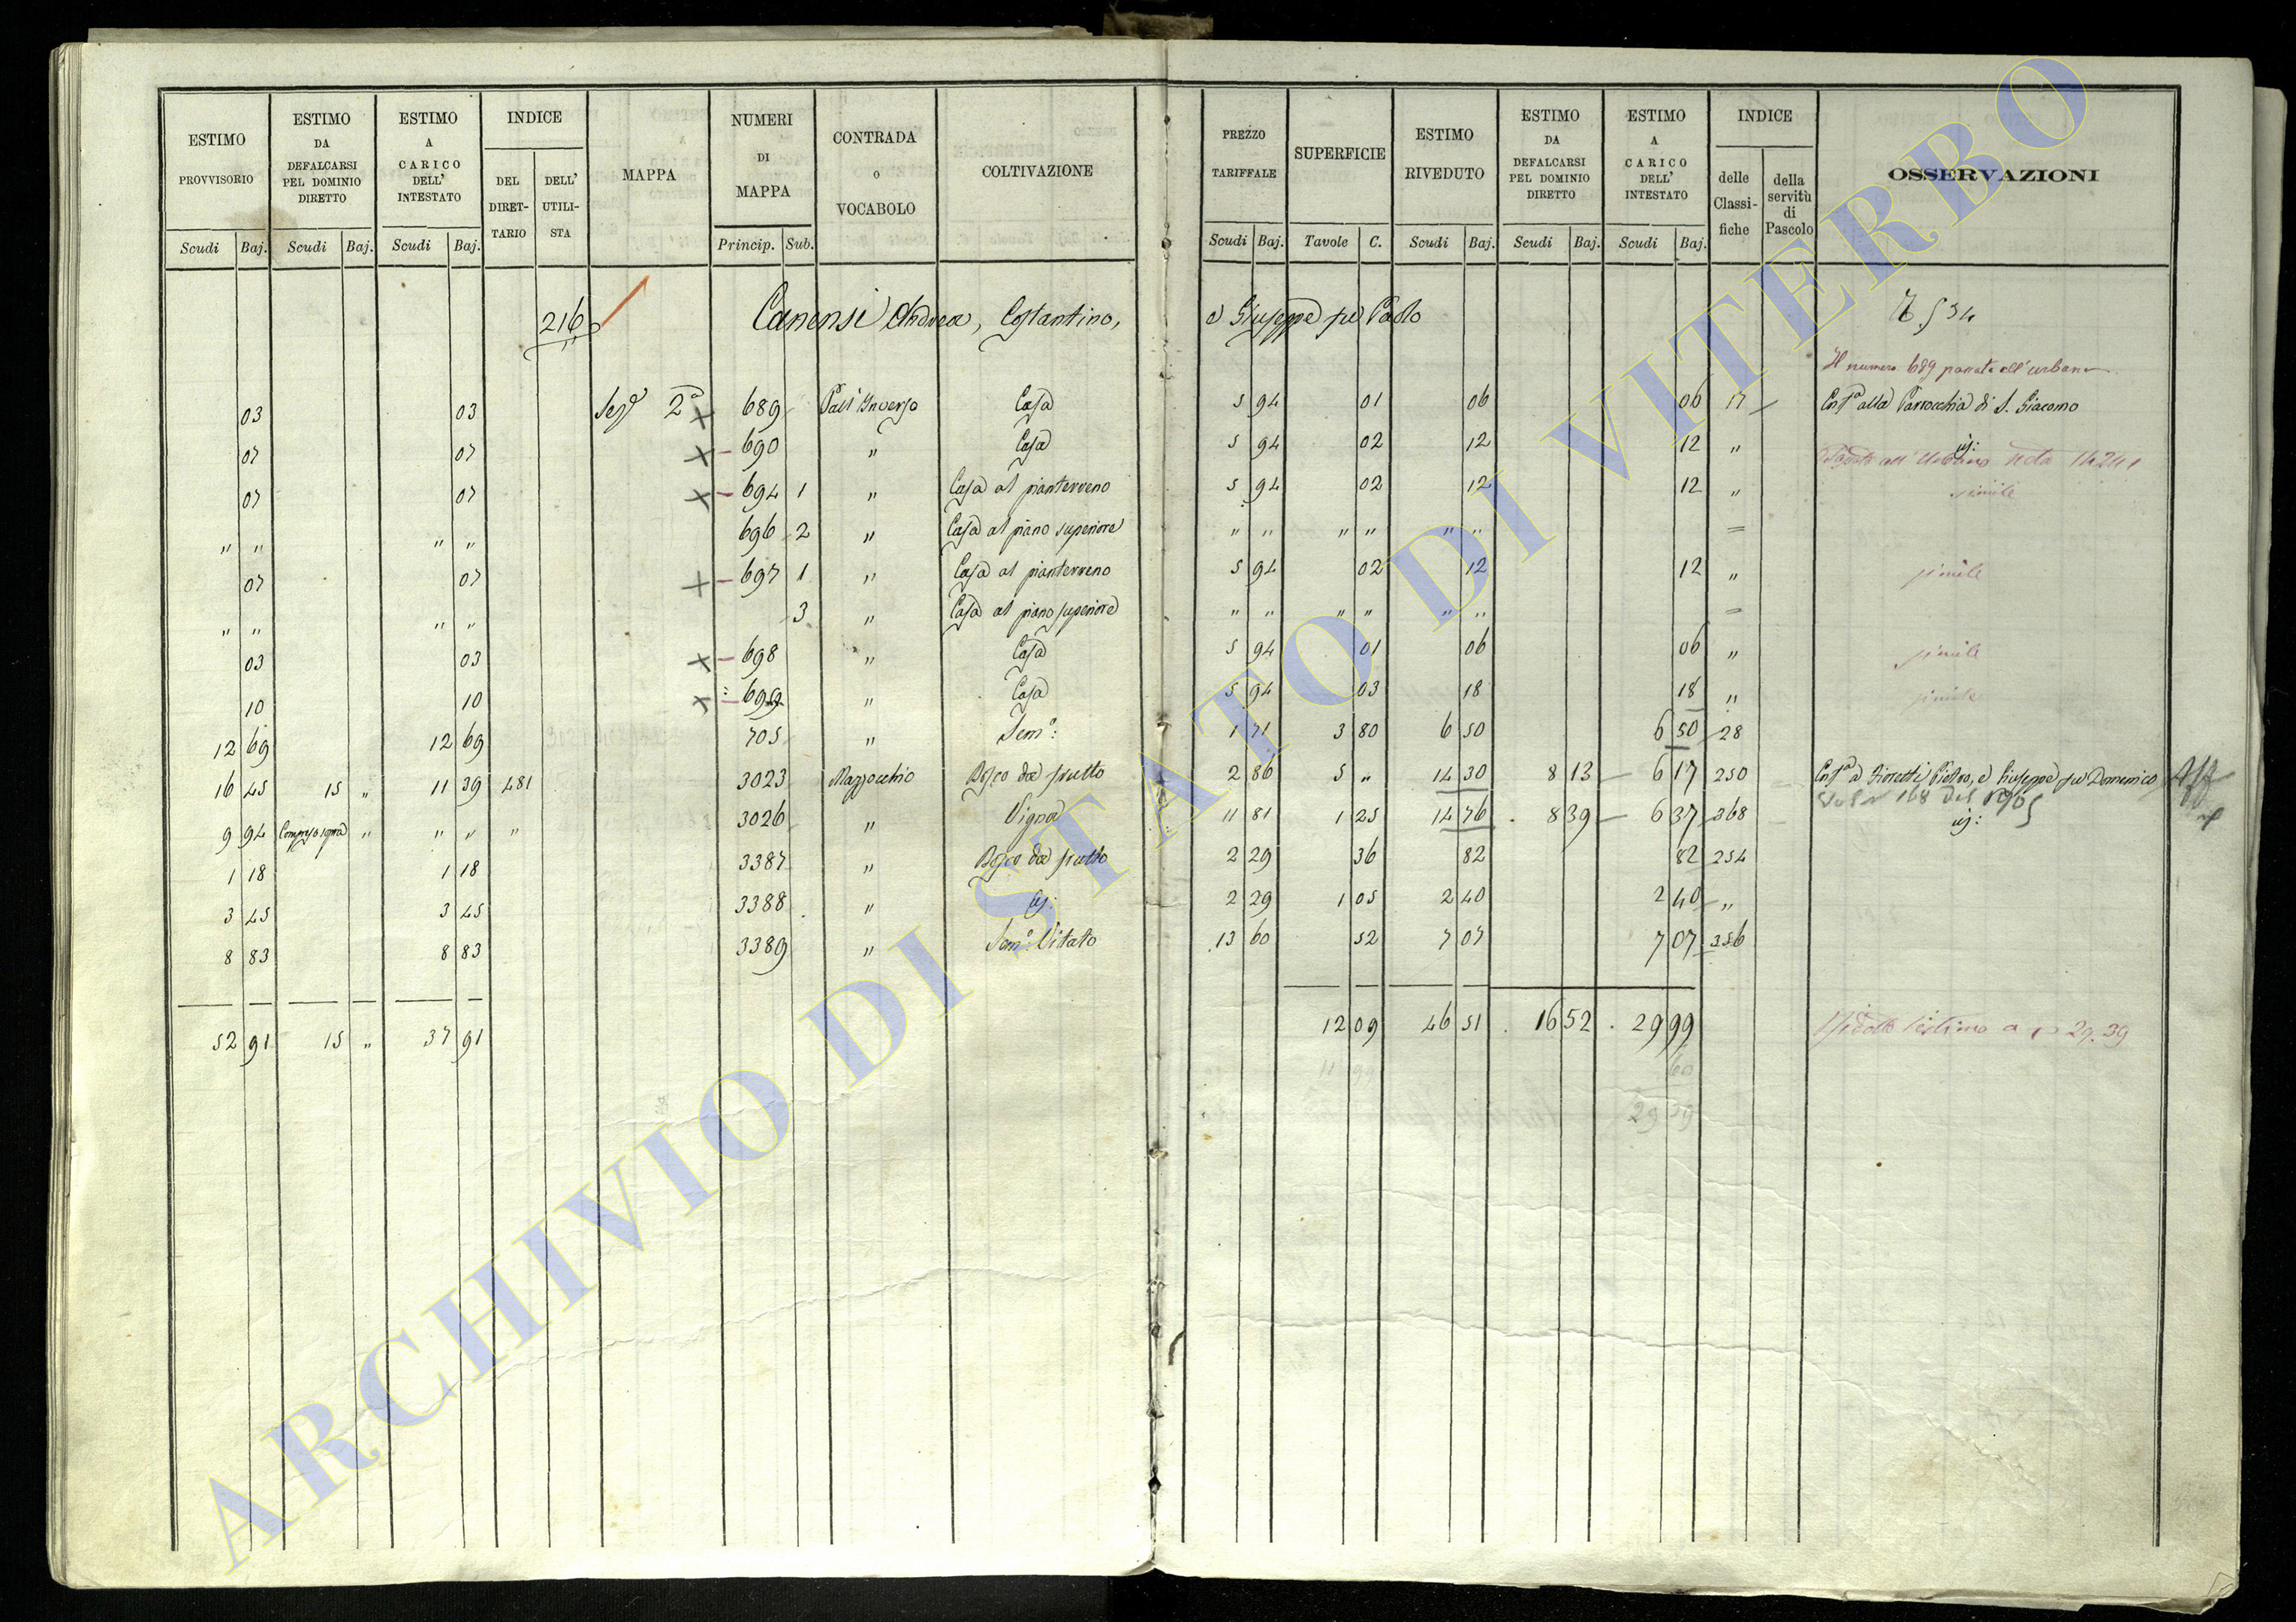 ESTIMO PROVVISORIO Scudi Baj. ESTIMO DA DEFALCARSI PEL DOMINIO DIRETTO Scudi Baj. ESTIMO A CARICO DELL' INTESTATO Scudi Baj. INDICE DEL DIRET-TARIO DELL' UTILI-STA MAPPA NUMERI DI MAPPA Princip. Sub. CONTRADA O VOCABOLO COLTIVAZIONE PREZZO TARIFFALE Scudi Baj. SUPERFICIE Tavole C. ESTIMO RIVEDUTO Scudi Baj. ESTIMO DA DEFALCARSI PEL DOMINIO DIRETTO Scudi Baj. ESTIMO A CARICO DELL' INTESTATO Scudi Baj. INDICE delle Classi-fiche della servitù di Pascolo OSSERVAZIONI
216 Canensi Andrea, Costantino, e Giuseppe fu Paolo 534
Il numero 689 passato all'urbano
03 03 Sez.e 2a x 689 Casa 5 94 01 06 06 17 alla Parrocchia di S. Giacomo
07 07 x 690 " Casa 5 94 02 12 12 " all'Urbano nota 14241
07 07 x 694 1 " Casa al pianterreno 5 94 02 12 12 " simile
" " " " 696 2 " Casa al piano superiore " " " " " " =
07 07 x 697 1 " Casa al pianterreno 5 94 02 12 12 " simile
" " " " 3 " Casa al piano superiore " " " " " " =
03 03 x 698 " Casa 5 94 01 06 06 " simile
10 10 x 699 " Casa 5 94 03 18 18 " simile
12 69 12 69 705 " Sem.o 1 71 3 80 6 50 6 50 28
16 45 15 " 11 39 481 3023 Mazzocchio Bosco da frutto 2 86 5 " 14 30 8 13 6 17 250 Pietro, e Giuseppe fu Domenico
9 94 Compreso sopra " " " " 3026 " Vigna 11 81 1 25 14 76 8 39 6 37 368
1 18 1 18 3387 " Bosco da frutto 2 29 36 82 82 254
3 45 3 45 3388 " 2 29 1 05 2 40 2 40 "
8 83 8 83 3389 " Sem.o Vitato 13 60 52 7 07 7 07 356
52 91 15 " 37 91 12 09 46 51 16 52 29 99 l'estimo a 29.39
11 99 60
29 39
ARCHIVIO DI STATO DI VITERBO